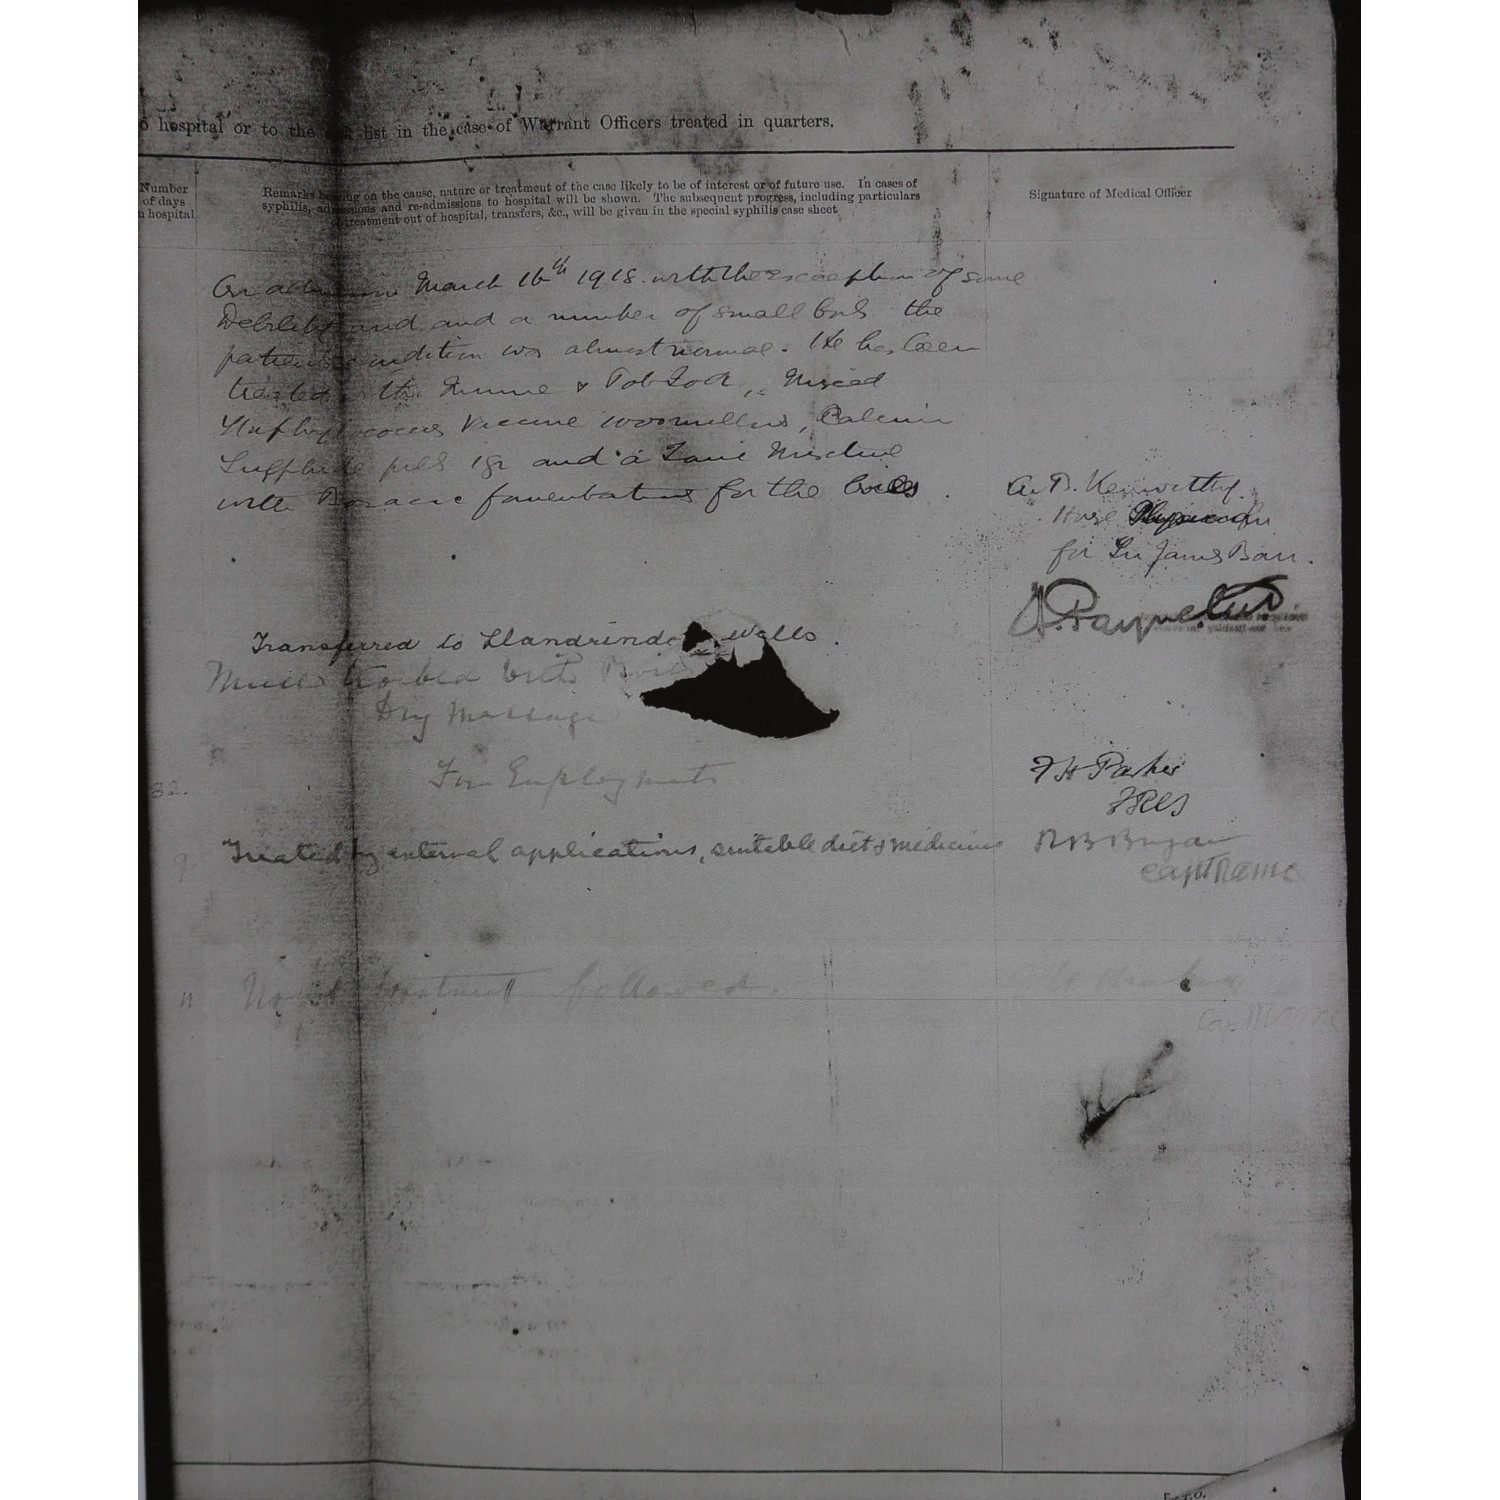 hospital or to the list in the case of Warrant Officers treated in quarters.
Number
of days
hospital
Remarks bearing on the cause, nature or treatment of the case likely to be of interest or of future use. In cases of
syphilis, admissions and re-admissions to hospital will be shown. The subsequent progress, including particulars
of treatment out of hospital, transfers, &c., will be given in the special syphilis case sheet
Signature of Medical Officer
On admission March 16th 1918 with the exception of some
Debility and and a number of small boils the
patients condition was almost normal. He has been
treated with Quinine & Pot Iod, Mixed
Staphylococcus Vaccine 1000 millions, Calcium
Sulphide pills 1gr and a Tonic Mixture
with Boracic fomentations for the boils.
A. B. Kenworthy.
House Physician
for Sir James Barr.
Transferred to Llandrindod Wells.
Much troubled with Boils
Dry Massage
32.
For Employment
F H Parker
FRCS
9.
Treated by external applications, suitable diet & medicine
R B Bryan
Capt RAMC
11
Usual treatment followed.
Cap
P.T.O.